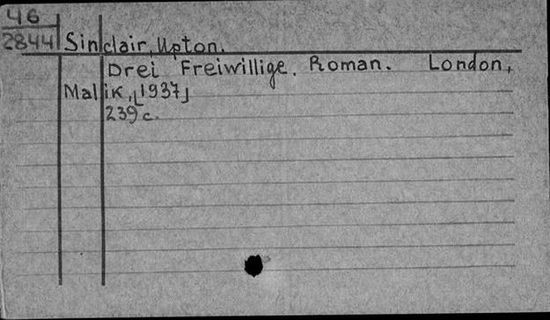 46
2844
Sinclair, Upton.
Drei Freiwillige. Roman. London,
Malik, [1937]
239 c.